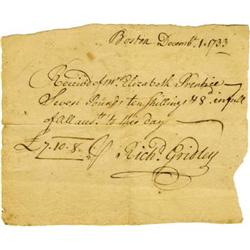 Boston Decembr. 1. 1733
Receiv'd of Mrs Elizabeth Prentice
Seven Pounds ten shillings & 8d. in full
of All accts. to this day
£ 7.10.8. Pr Richd. Gridley